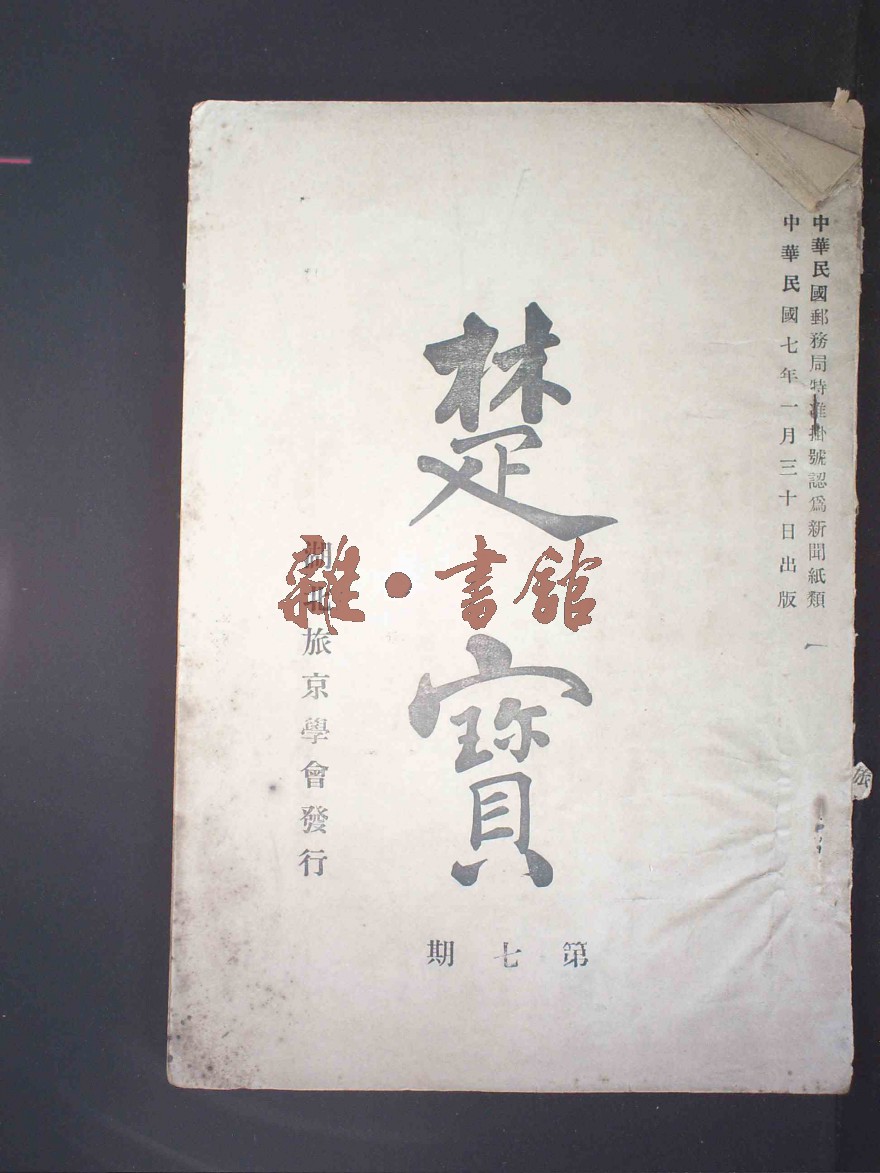 中華民國郵務局特准掛號認爲新聞紙類
中華民國七年一月三十日出版
楚寳
第七期
湖北旅京學會發行
雜·書館
旅